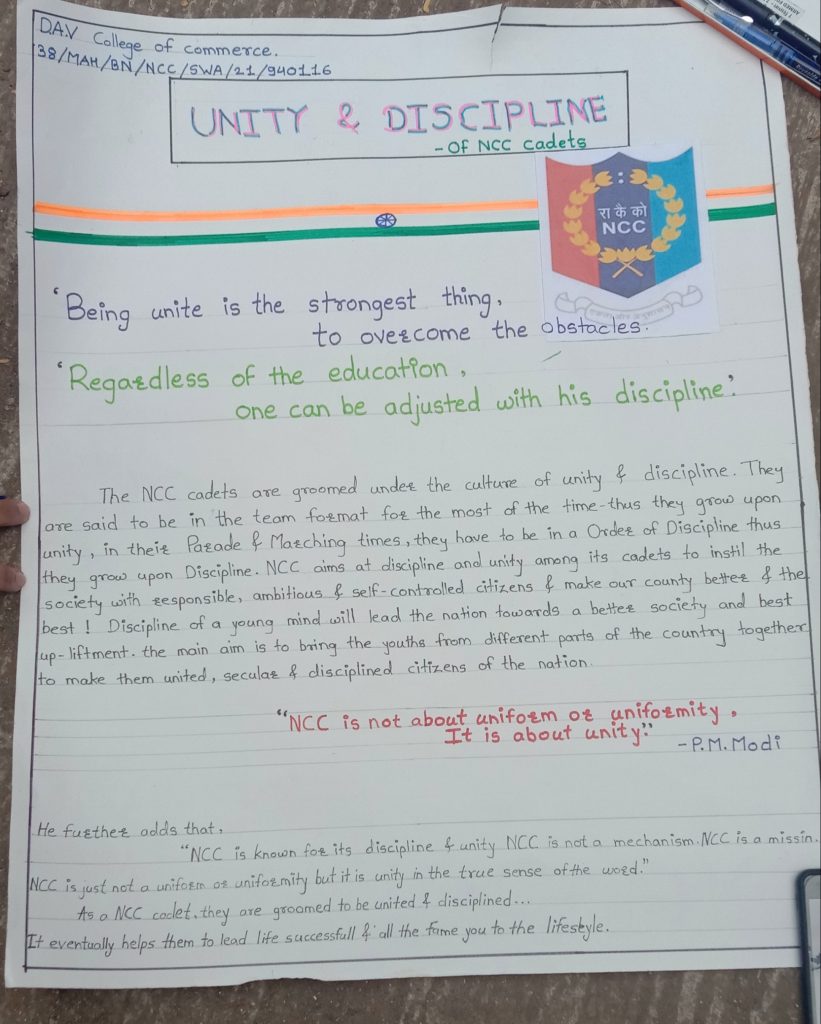 DAV College of commerce.
38/MAH/BN/NCC/SWA/21/940116
UNITY & DISCIPLINE
- OF NCC cadets
रा कै को
NCC
एकता और अनुशासन
'Being unite is the strongest thing,
to overcome the obstacles.
'Regardless of the education,
one can be adjusted with his discipline'.
The NCC cadets are groomed under the culture of unity & discipline. They
are said to be in the team format for the most of the time-thus they grow upon
unity, in their Parade & Marching times, they have to be in a Order of Discipline thus
they grow upon Discipline. NCC aims at discipline and unity among its cadets to instil the
society with responsible, ambitious & self-controlled citizens & make our county better & the
best! Discipline of a young mind will lead the nation towards a better society and best
up-liftment. the main aim is to bring the youths from different parts of the country together
to make them united, secular & disciplined citizens of the nation.
"NCC is not about uniform or uniformity,
It is about unity."
-P.M. Modi
He further adds that,
"NCC is known for its discipline & unity NCC is not a mechanism. NCC is a missin.
NCC is just not a uniform or uniformity but it is unity in the true sense of the word."
As a NCC cadet, they are groomed to be united & disciplined...
It eventually helps them to lead life successfull & all the fame you to the lifestyle.